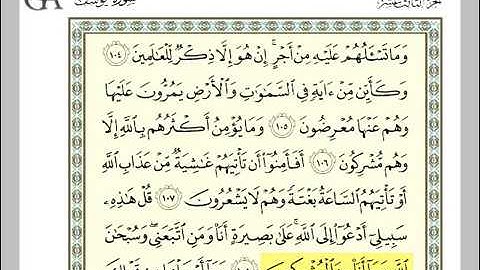 سورة يوسف
الجزء الثالث عشر
وَمَا تَسْـَٔلُهُمْ عَلَيْهِ مِنْ أَجْرٍ ۚ إِنْ هُوَ إِلَّا ذِكْرٌ لِّلْعَـٰلَمِينَ ١٠٤
وَكَأَيِّن مِّنْ ءَايَةٍ فِى ٱلسَّمَـٰوَٰتِ وَٱلْأَرْضِ يَمُرُّونَ عَلَيْهَا
وَهُمْ عَنْهَا مُعْرِضُونَ ١٠٥ وَمَا يُؤْمِنُ أَكْثَرُهُم بِٱللَّهِ إِلَّا
وَهُم مُّشْرِكُونَ ١٠٦ أَفَأَمِنُوٓا۟ أَن تَأْتِيَهُمْ غَـٰشِيَةٌ مِّنْ عَذَابِ ٱللَّهِ
أَوْ تَأْتِيَهُمُ ٱلسَّاعَةُ بَغْتَةً وَهُمْ لَا يَشْعُرُونَ ١٠٧ قُلْ هَـٰذِهِۦ
سَبِيلِىٓ أَدْعُوٓا۟ إِلَى ٱللَّهِ ۚ عَلَىٰ بَصِيرَةٍ أَنَا۠ وَمَنِ ٱتَّبَعَنِى ۖ وَسُبْحَـٰنَ